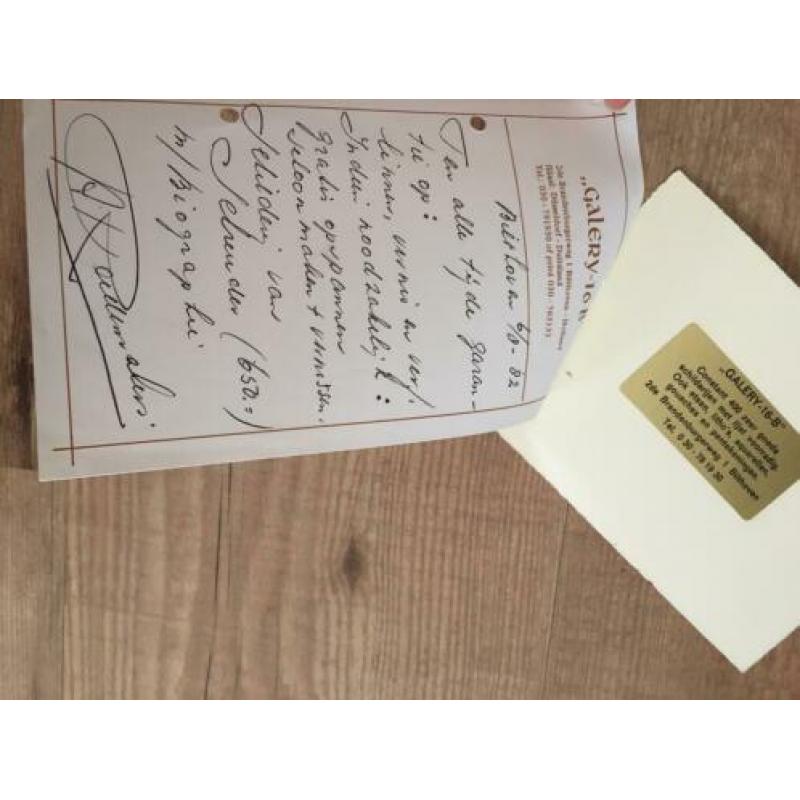 „GALERY-16-B"
2de Brandenburgerweg 1 Bilthoven - Holland
filiaal: Düsseldorf - Duitsland
Tel. 030 - 791930 of privé 030 - 763333
Bilthoven 6/8-82
Ten alle tijde garan-
tie op:
linnen, vernis en verf.
Indien noodzakelijk:
gratis opspannen
schoonmaken + vernissen.
Schilderij van
Schender (650.=)
m/Biographie
„GALERY-16-B"
Constant 400 zeer goede
schilderijen met lijst voorradig.
Ook etsen, litho's, aquarellen,
gouaches en pentekeningen.
2de Brandenburgerweg 1 Bilthoven
Tel. 030 - 79 19 30